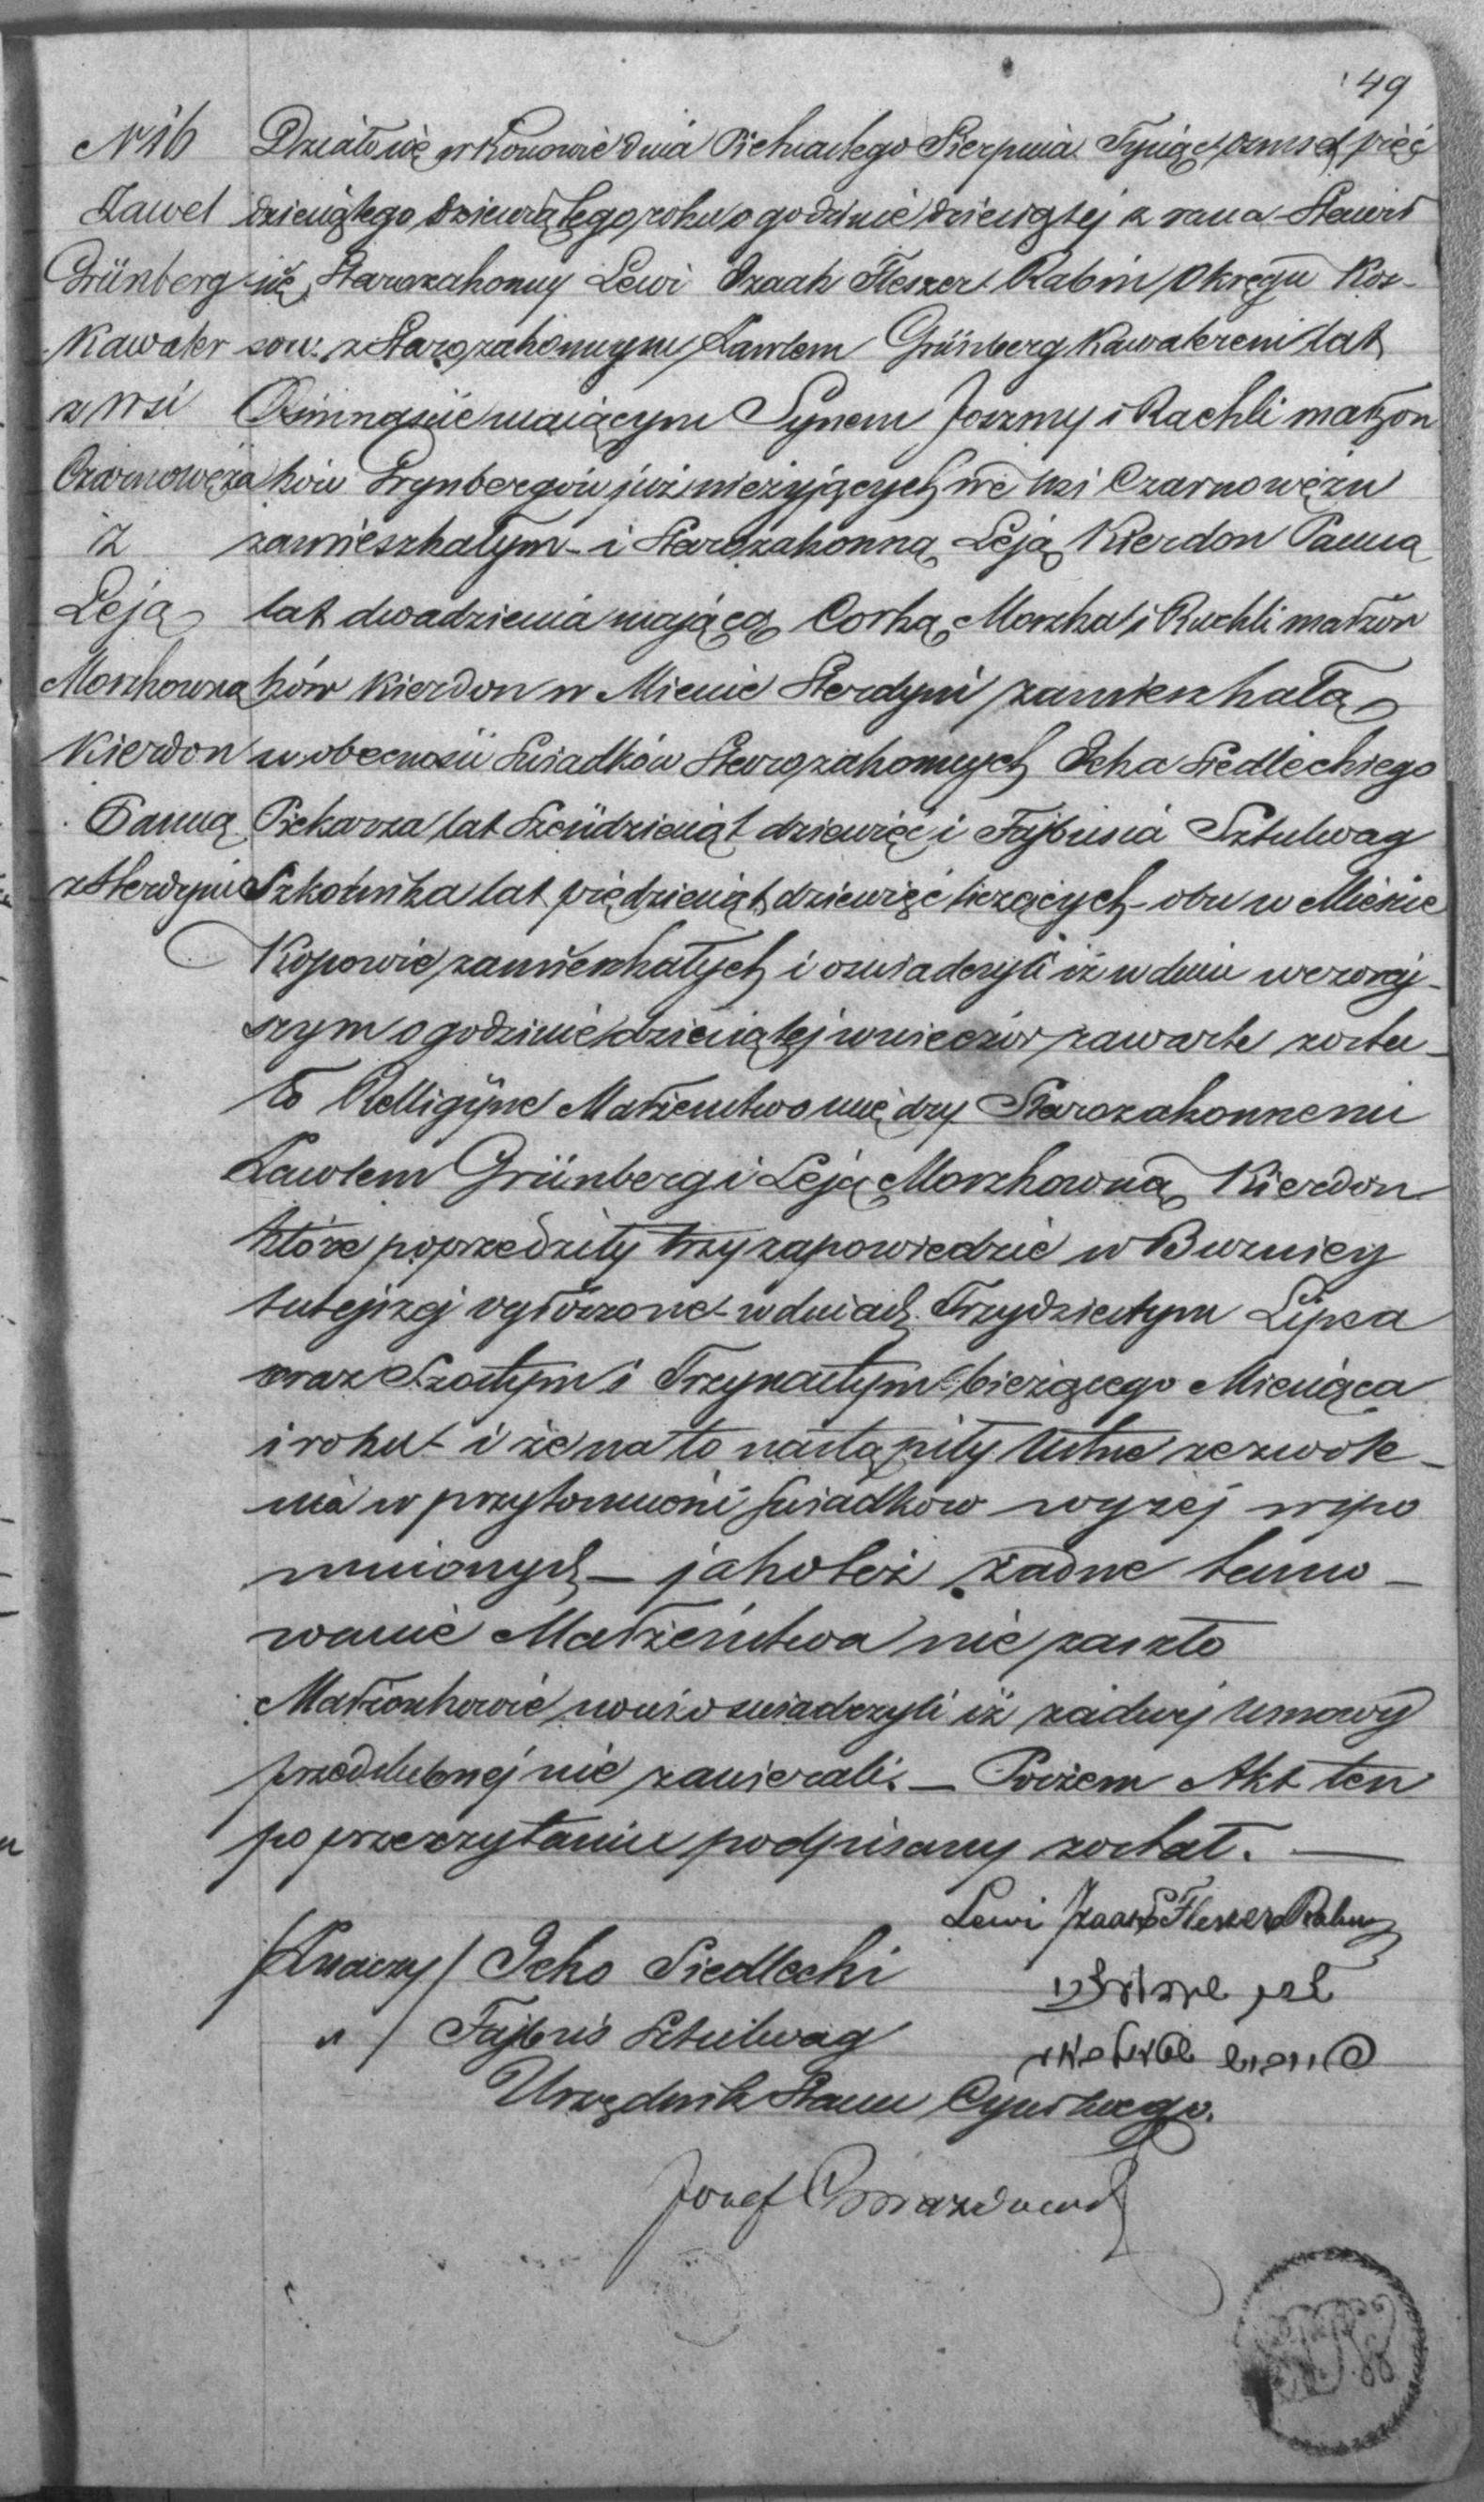 49
N 16
Zawel
Grünberg
Kawaler
z Wsi
Czarnowęża
iż
Leją
Moszkowna
Kierdon
Panną
z Sterdyni
Działo się w Kosowie dnia Piętnastego Sierpnia Tysiąc ośmset pięć
dziesiątego dziewiątego roku o godzinie dziesiątej z rana Stawił
się Starozakonny Lewi Izaak Fleszer Rabin Okręgu Kos-
sow: z Starozakonnym Zawlem Grünberg Kawalerem lat
Ośmnaście mającym Synem Joszmy i Rachli małżon
ków Grynbergów już nieżyjących we wsi Czarnowężu
zamieszkałym - i Starozakonną Leją Kierdon Panną
lat dwadzieścia mającą Corką Moszka i Ruchli małżon
ków Kierdon w Mieście Sterdyni zamieszkałą
w obecności Świadków Starozakonnych Icka Siedleckiego
Piekarza lat Sześdziesiąt dziewięć i Fajbusia Sztulwag
Szkolnika lat piędziesiąt dziewięć liczących obu w Mieście
Kosowie zamieszkałych i oświadczyli iż w dniu wczoraj-
szym o godzinie dziesiątej wwieczór zawarte zosta-
ło Relligijne Małżeństwo między Starozakonnemi
Zawlem Grünberg i Leją Moszkowną Kierdon
które poprzedziły trzy zapowiedzie w Bużnicy
tutejszej ogłoszone w dniach Trzydziestym Lipca
oraz Szóstym i Trzynastym bieżącego Miesiąca
i roku - i że na to nastąpiły Ustne zezwole-
nia w przytomności Świadków wyżej wspo
mnionych - jakoteż żadne tamo-
wanie Małżeństwa nie zaszło
Małżonkowie nowi oświadczyli iż żadnej Umowy
przedślubnej nie zawierali. - Poczem Akt ten
po przeczytaniu podpisany został. -
Lewi Izaak Fleszer Rabin
/Znaczy/ Icko Siedlecki
" / Fajbus Sztulwag
Urzędnik Stanu Cywilnego.
Jozef